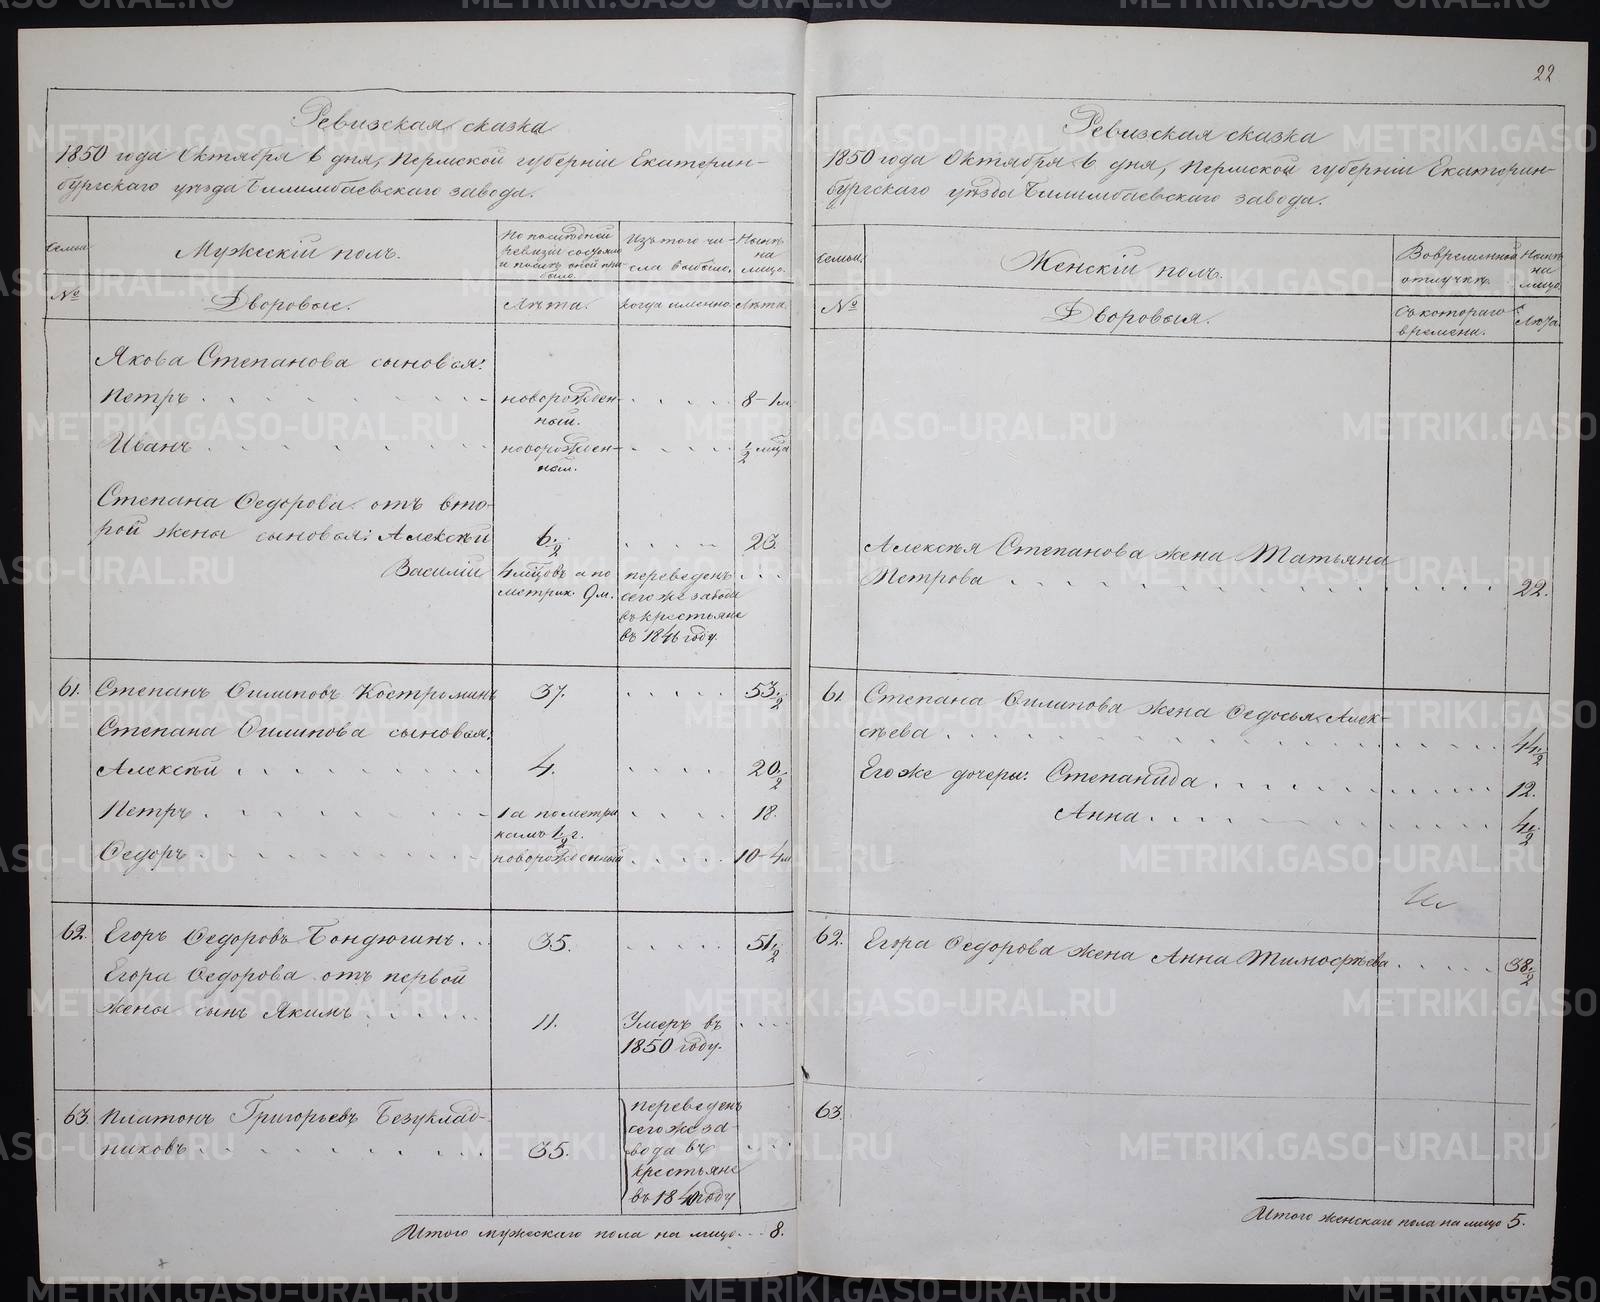 22
Ревизская сказка
1850 года Октября 6 дня, Пермской губернiи Екатерин-
бургскаго уѣзда Билимбаевскаго завода.
Семьи.
Мужескiй полъ.
По последней
ревизiи состояло
и послѣ оной при-
было.
Изъ того чи-
сла выбыло.
Нынѣ
на
лицо.
№
Дворовые.
Лѣта.
Когда именно.
Лѣта.
Якова Степанова сыновья:
Петръ новорожден-
ный. 8-1м
Иванъ новорожден-
ный. 1/2 мѣца
Степана Ѳедорова отъ вто-
рой жены сыновья: Алексѣй 6 1/2 23.
Василiй 4 мѣцовъ а по
метрик. 9 м.
переведенъ
сего же завода
въ крестьяне
въ 1846 году.
61. Степанъ Ѳилиповъ Костроминъ 37. 53 1/2
Степана Ѳилипова сыновья:
Алексѣй 4. 20 1/2
Петръ 1 а по метри
камъ 1 1/2 г. 18.
Ѳедоръ новорожденный 10-4м
62. Егоръ Ѳедоровъ Бондюгинъ 35. 51 1/2
Егора Ѳедорова отъ первой
жены сынъ Якимъ 11. Умеръ въ
1850 году.
63. Платонъ Григорьевъ Безуклад-
никовъ 35.
переведенъ
сего же за-
вода въ
крестьяне
въ 1840 году
Итого мужескаго пола на лицо 8.
Ревизская сказка
1850 года Октября 6 дня, Пермской губернiи Екатерин-
бургскаго уѣзда Билимбаевскаго завода.
Семьи.
Женскiй полъ.
Во временной
отлучкѣ.
Нынѣ
на
лицо
№
Дворовыя.
Съ котораго
времени.
Лѣта.
Алексѣя Степанова жена Татьяна
Петрова 22.
61. Степана Ѳилипова жена Ѳедосья Алек-
сѣева 44 1/2
Его же дочери: Степанида 12.
Анна 4 1/2
62. Егора Ѳедорова жена Анна Тимоѳѣева 38 1/2
63.
Итого женскаго пола на лицо 5.
METRIKI.GASO-URAL.RU